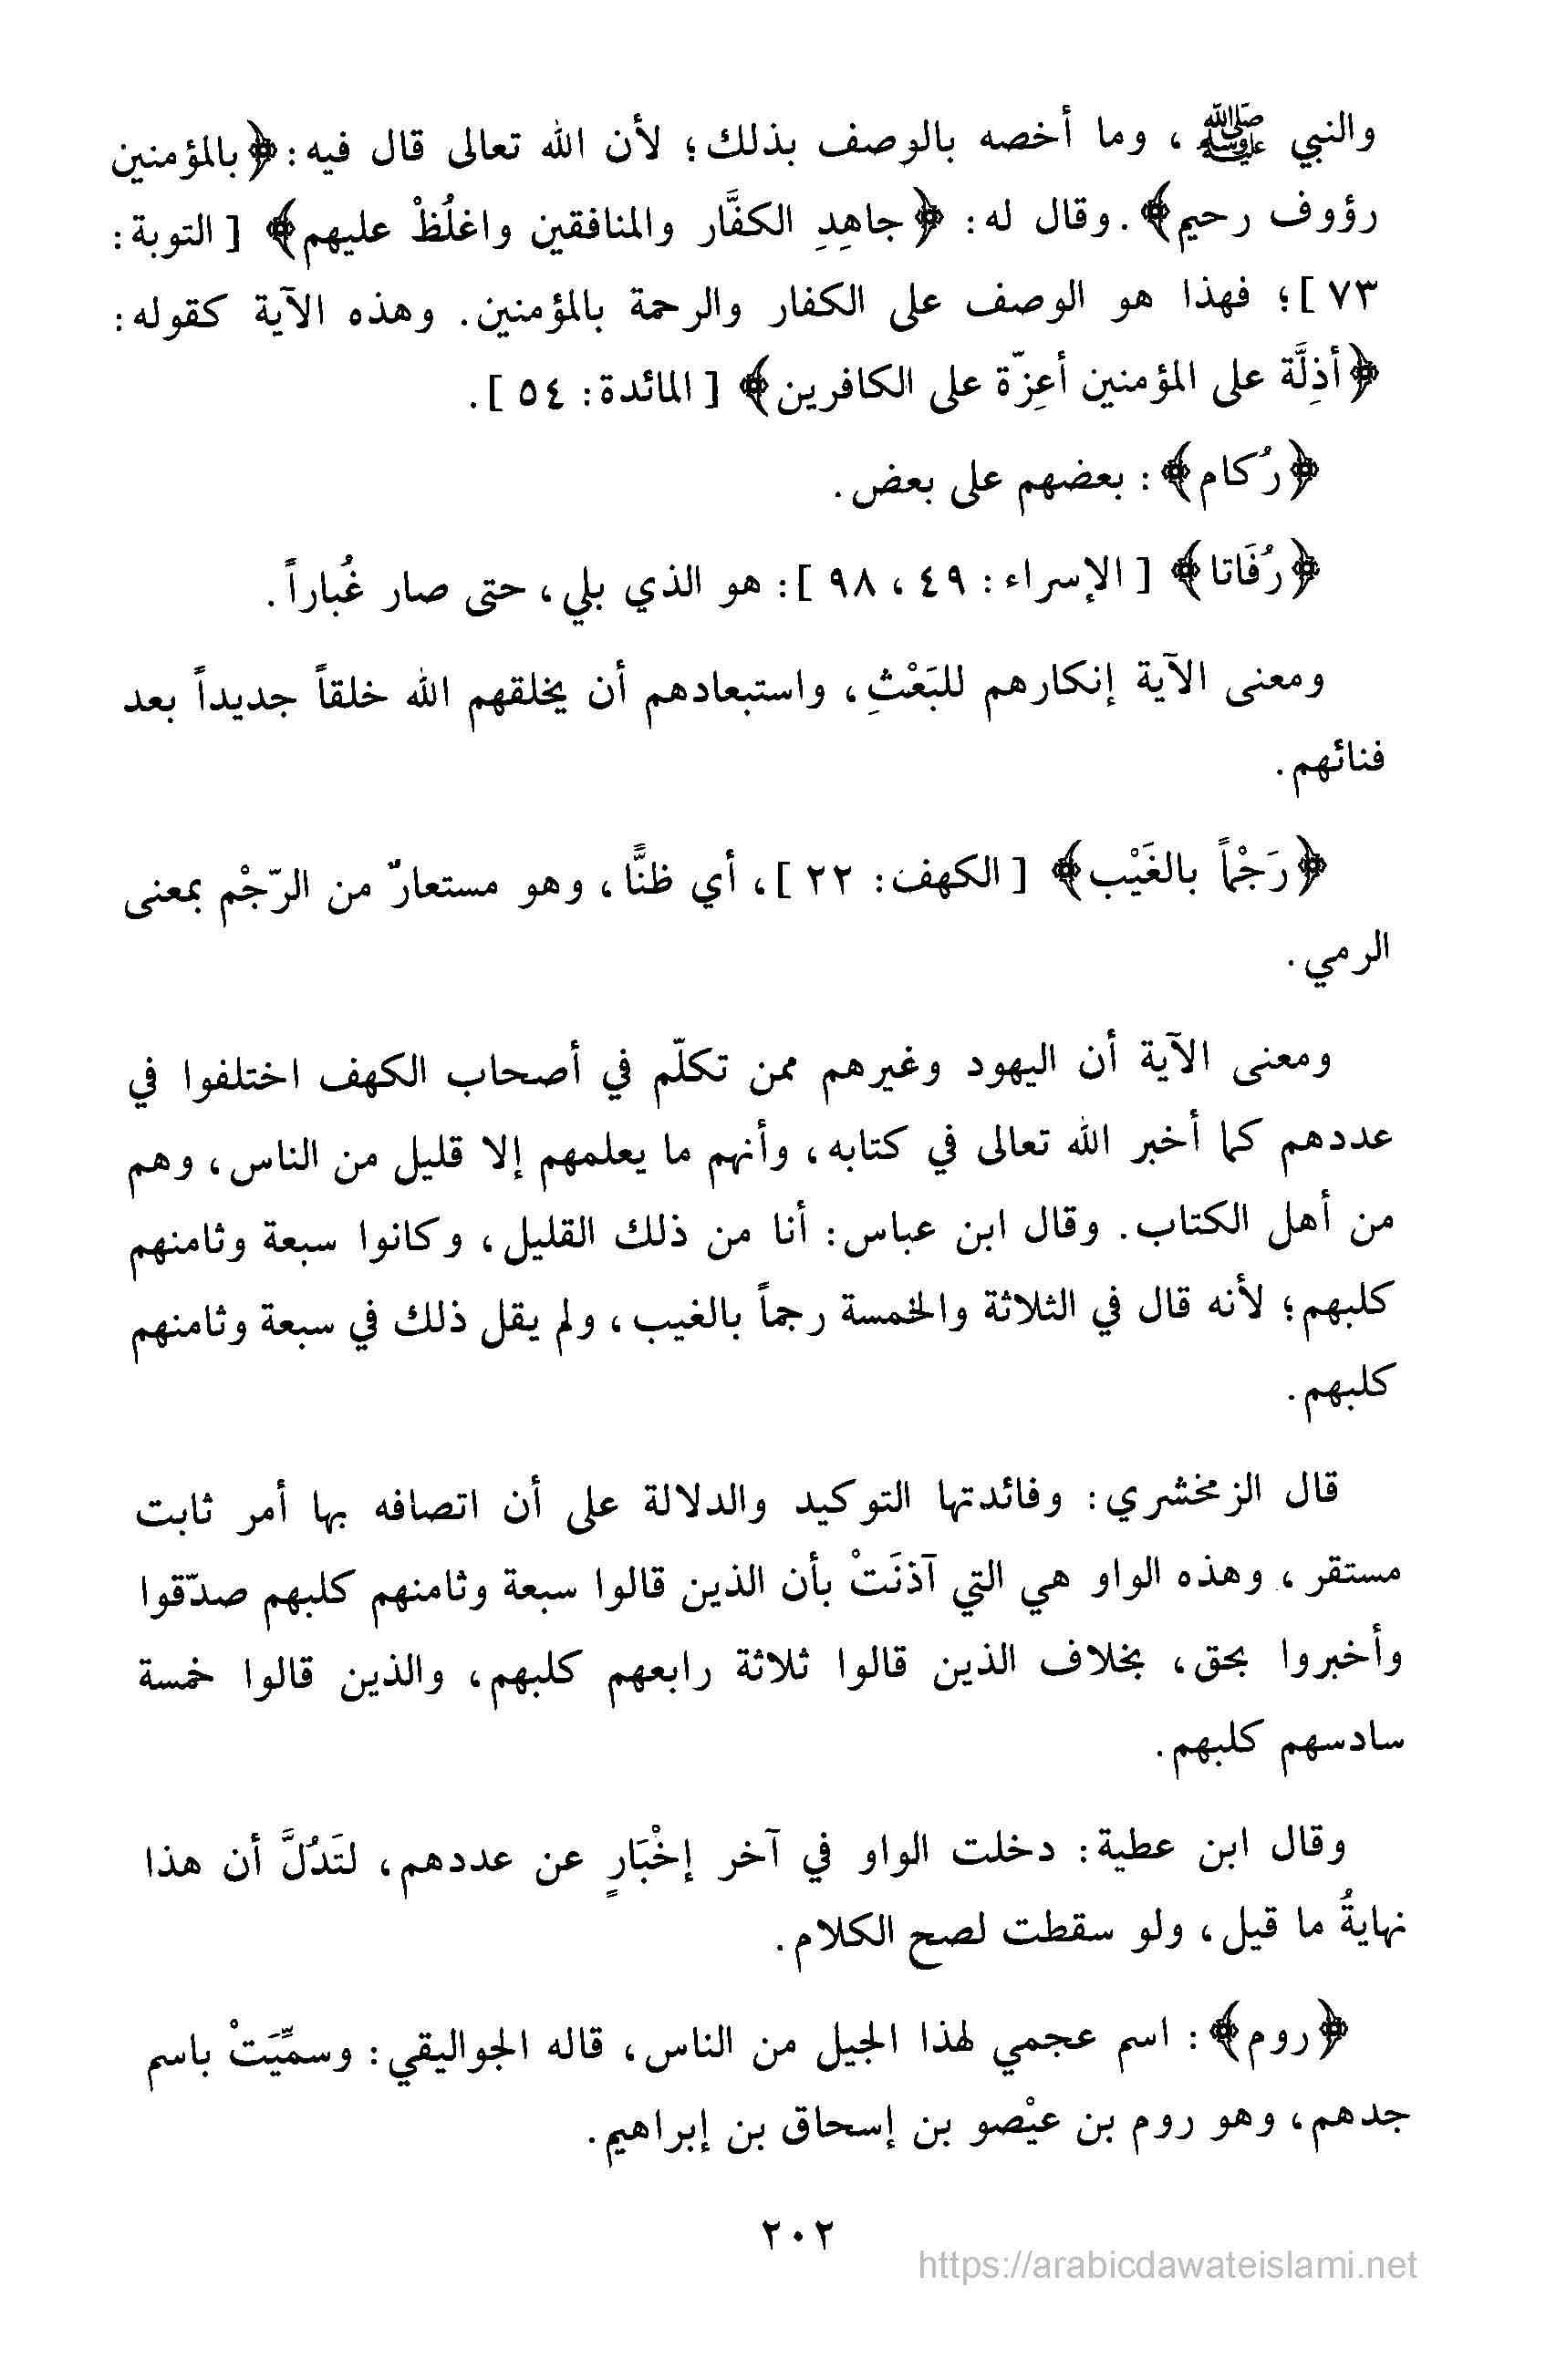 والنبي ﷺ ، وما أخصه بالوصف بذلك؛ لأن الله تعالى قال فيه: ﴿بالمؤمنين
رؤوف رحيم﴾. وقال له: ﴿جاهِدِ الكفَّار والمنافقين واغلُظْ عليهم﴾ [ التوبة:
٧٣ ]؛ فهذا هو الوصف على الكفار والرحمة بالمؤمنين. وهذه الآية كقوله:
﴿أذِلَّة على المؤمنين أعِزّة على الكافرين﴾ [ المائدة: ٥٤ ].
﴿رُكام﴾: بعضهم على بعض.
﴿رُفَاتا﴾ [ الإسراء: ٤٩ ، ٩٨ ]: هو الذي بلي، حتى صار غُباراً.
ومعنى الآية إنكارهم للبَعْثِ، واستبعادهم أن يخلقهم الله خلقاً جديداً بعد
فنائهم.
﴿رَجْماً بالغَيْب﴾ [ الكهف: ٢٢ ]، أي ظنًّا، وهو مستعارٌ من الرّجْم بمعنى
الرمي.
ومعنى الآية أن اليهود وغيرهم ممن تكلّم في أصحاب الكهف اختلفوا في
عددهم كما أخبر الله تعالى في كتابه، وأنهم ما يعلمهم إلا قليل من الناس، وهم
من أهل الكتاب. وقال ابن عباس: أنا من ذلك القليل، وكانوا سبعة وثامنهم
كلبهم؛ لأنه قال في الثلاثة والخمسة رجماً بالغيب، ولم يقل ذلك في سبعة وثامنهم
كلبهم.
قال الزمخشري: وفائدتها التوكيد والدلالة على أن اتصافه بها أمر ثابت
مستقر، وهذه الواو هي التي آذنَتْ بأن الذين قالوا سبعة وثامنهم كلبهم صدّقوا
وأخبروا بحق، بخلاف الذين قالوا ثلاثة رابعهم كلبهم، والذين قالوا خمسة
سادسهم كلبهم.
وقال ابن عطية: دخلت الواو في آخر إخْبَارٍ عن عددهم، لتَدُلَّ أن هذا
نهايةُ ما قيل، ولو سقطت لصح الكلام.
﴿روم﴾: اسم عجمي لهذا الجيل من الناس، قاله الجواليقي: وسمِّيَتْ باسم
جدهم، وهو روم بن عيْصو بن إسحاق بن إبراهيم.
٢٠٢
https://arabicdawateislami.net